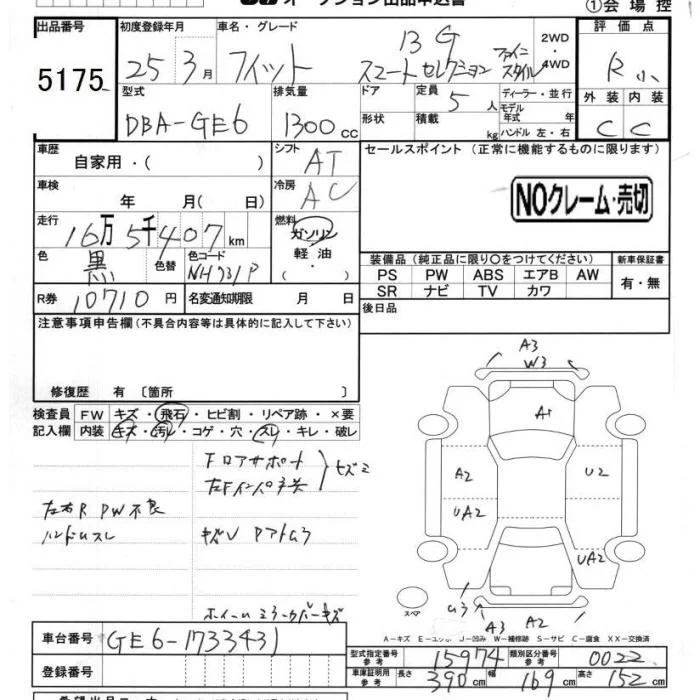 オークション出品申込書
① 会 場 控
出品番号
5175
初度登録年月
25 3 月
車名・グレード
フィット
13G
スマートセレクション
ファイン
スタイル
2WD
4WD
評 価 点
R 小
外 装 内 装
C C
型式
DBA-GE6
排気量
1300 cc
ドア
形状
定員
5 人
積載
kg
ディーラー・並 行
モデル
年式 年
ハンドル 左・右
車歴
自家用・( )
シフト
AT
車検
年 月( 日)
冷房
AC
走行
16万 5千 407 km
燃料
ガソリン
軽 油
・( )
色
黒
色替
色コード
NH731P
R券
10710 円
名変通知期限 月 日
セールスポイント (正常に機能するものに限ります)
NOクレーム・売切
装備品 (純正品に限り○をつけてください)
新車保証書
PS PW ABS エアB AW
SR ナビ TV カワ
有・無
後日品
注意事項申告欄 (不具合内容等は具体的に記入して下さい)
修復歴 有 〔箇所 〕
検査員
記入欄
FW キズ・飛石・ヒビ割・リペア跡・×要
内装 キズ・汚レ・コゲ・穴・スレ・キレ・破レ
FロアサポートU
左Fインパネ
キズミ
左右R PW不良
ハンドルスレ
ホイールミラーカバーキズ
A3
W3
A1
A2
U2
UA2
UA2
U3
A3
A2
スペア
A-キズ E-エクボ J-凹み W-補修跡 S-サビ C-腐食 XX-交換済
車台番号
GE6-1733431
登録番号
型式指定番号
参考
15974
類別区分番号
参考
0022
車庫証明用
参考
長さ 390 cm
幅 169 cm
高さ 152 cm